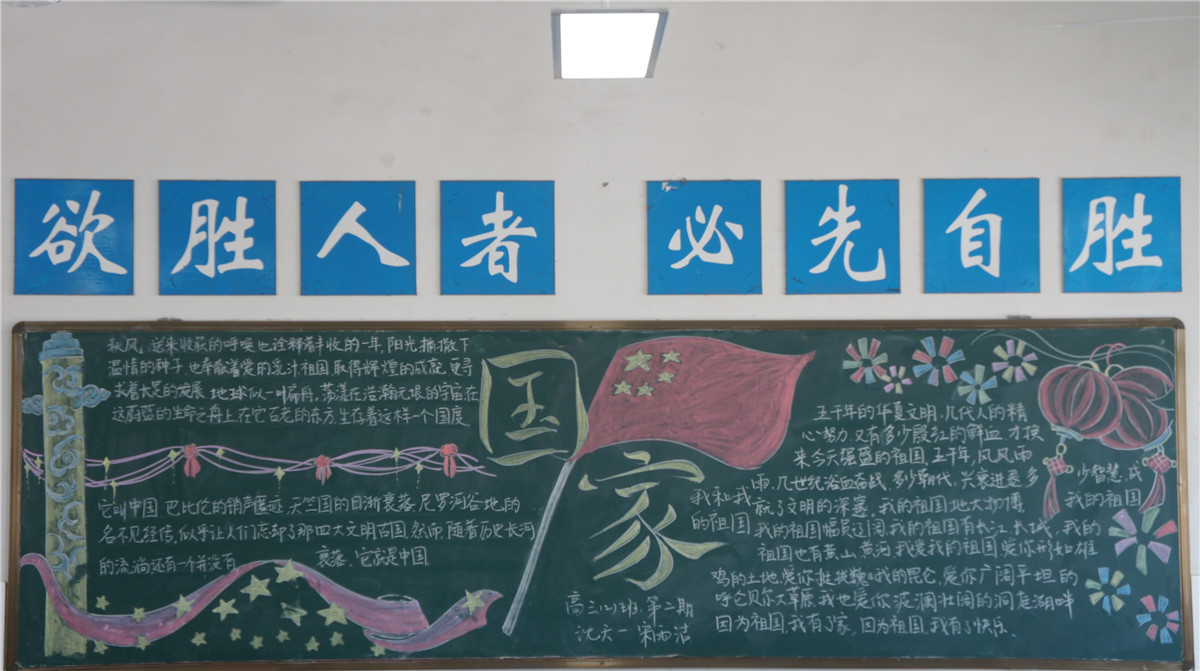 欲胜人者 必先自胜
秋风,送来收获的呼唤也诠释着丰收的一年,阳光播撒下
温情的种子,也奉献着爱的乳汁祖国取得辉煌的成就,更寻
求着长足的发展,地球似一叶扁舟,荡漾在浩瀚无垠的宇宙在
这蔚蓝的生命之舟上,在它古老的东方生存着这样一个国度
它叫中国,巴比伦的销声匿迹,天竺国的日渐衰落,尼罗河谷地的
名不见经传,似乎让人们忘却了那四大文明古国,然而,随着历史长河
的流淌还有一个并没有 衰落,它就是中国
国
家
五千年的华夏文明,几代人的精
心努力,又有多少殷红的鲜血,才换
来今天强盛的祖国,五千年,风风雨
雨,几世纪浴血奋战,多少朝代,兴衰进退多少智慧,成
就了文明的深邃,我的祖国地大物博 我的祖国
我和我
的祖国
我的祖国幅员辽阔,我的祖国有长江,长城,我的
祖国也有黄山,黄河,我爱我的祖国,爱你形如雄
鸡的土地,爱你挺拔巍峨的昆仑,爱你广阔平坦的
呼仑贝尔大草原,我也爱你波澜壮阔的洞庭湖畔
因为祖国,我有了家,因为祖国,我有了快乐。
高三(2)班.第二期
沈天一 宋雨洁